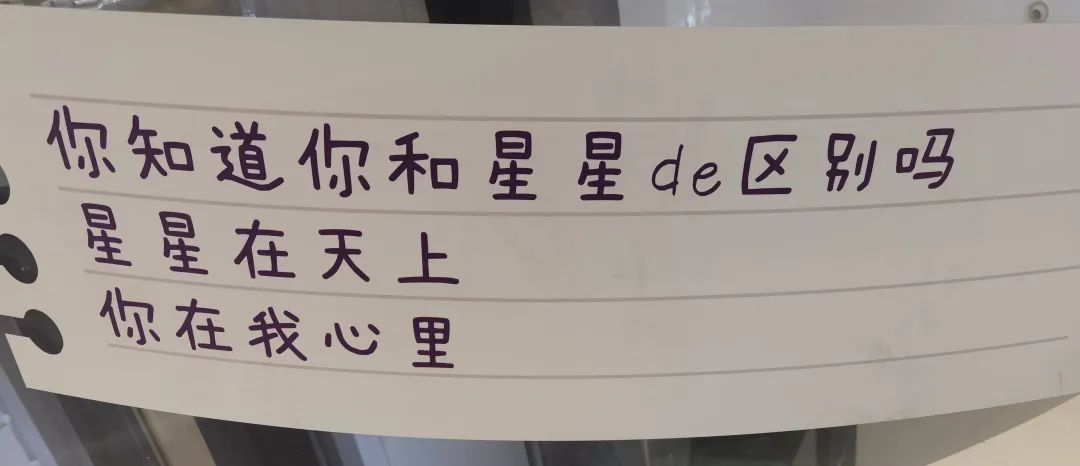 你知道你和星星de区别吗
星星在天上
你在我心里